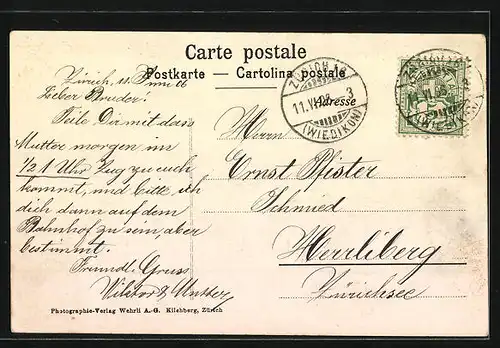 Carte postale
Postkarte — Cartolina postale
Adresse
Zürich, 11. Juni 06
Lieber Bruder!
Teile Dir mit dass
Mutter morgen im
1/2 1 Uhr Zug zu euch
kommt, und bitte, ich
dich dann auf dem
Bahnhof zu sein, aber
bestimmt.
Freundl. Gruss
& Mutter
ZÜRICH
11.VI.06
3
(WIEDIKON)
Herrn
Ernst Pfister
Schmied
Herrliberg
Zürichsee
Photographie-Verlag Wehrli A.-G. Kilchberg, Zürich